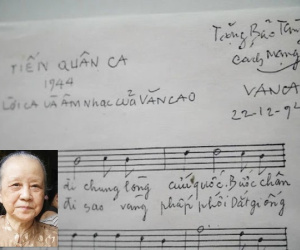 TIẾN QUÂN CA
1944
LỜI CA VÀ ÂM NHẠC CỦA VĂN CAO
Tặng Bảo Tàng
Cách Mạng
VĂN CA
22-12-94
đi chung lòng cứu quốc. Bước chân
đi sao vàng phấp phới Dắt giống